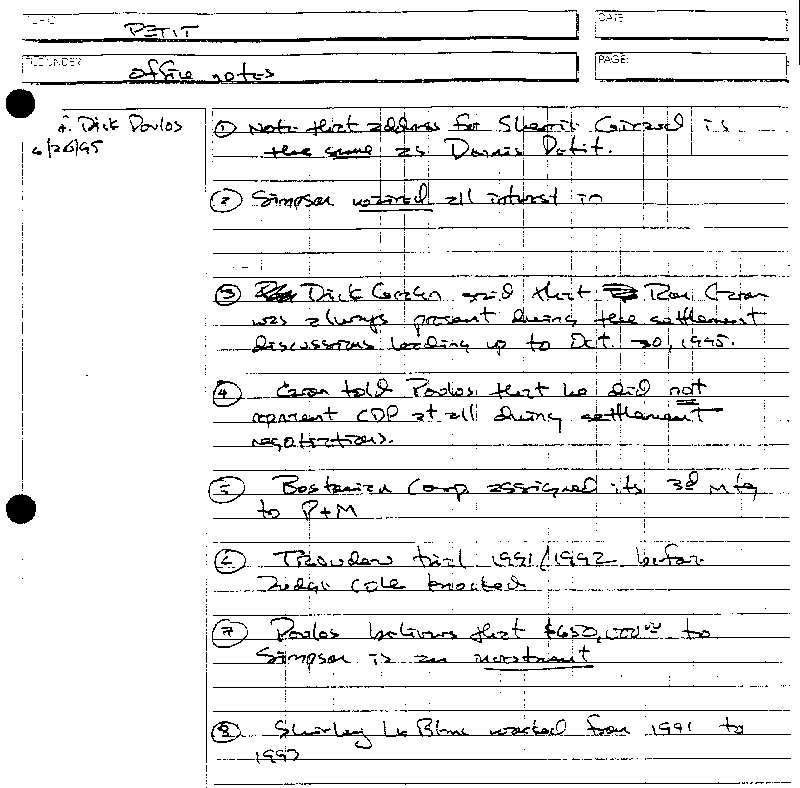 PETIT
DATE
FILE UNDER
office notes
PAGE:
Dick Poulos
6/26/95
① Note that address for Sherri Girard is
the same as Dennis Petit.
② Simpson waived all interest in
③ Dick said that Ron
was always present during the settlement
discussions leading up to Oct. 30, 1995.
④ told Poulos that he did not
represent CDP at all during settlement
negotiations.
⑤ Corp. assigned its 3d Mtg
to P+M
⑥ trial 1991/1992 before
Judge Cole
⑦ Poulos believes that $650,000.00 to
Simpson is an investment
⑧ Shirley Le Blanc worked from 1991 to